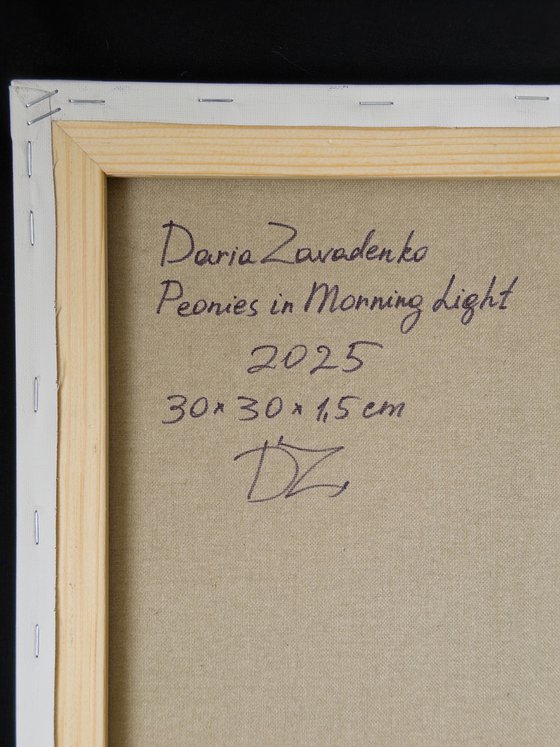 Daria Zavadenko
Peonies in Morning Light
2025
30×30×1,5 cm
DZ